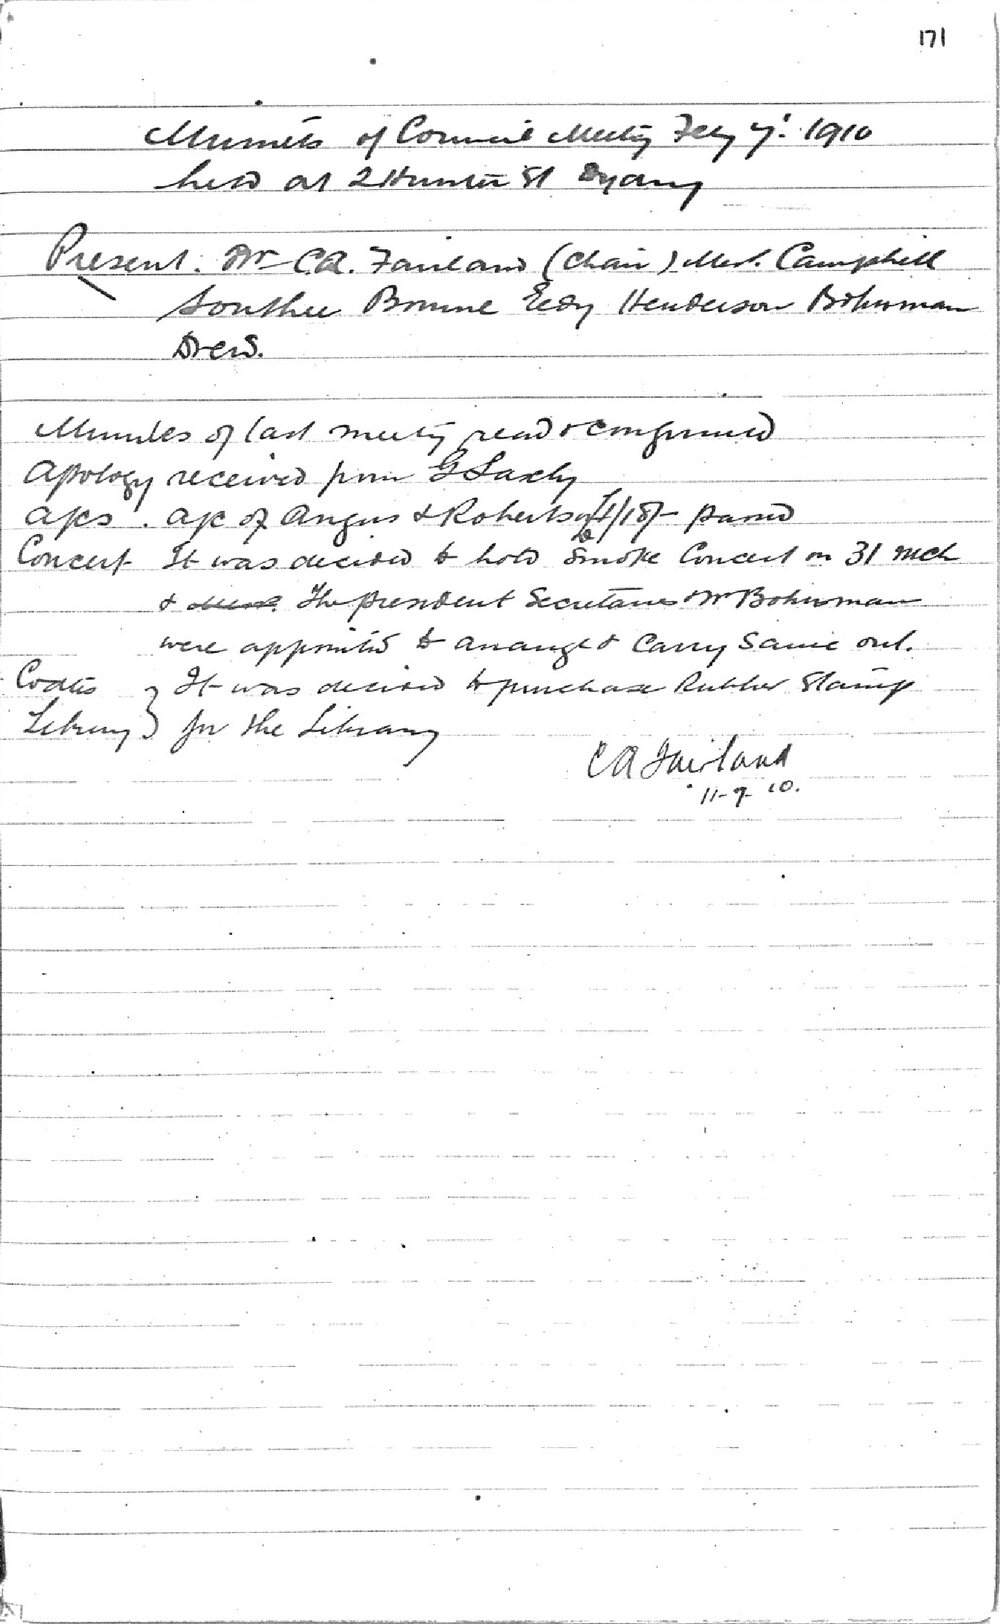 171
Minutes of Council Meeting Feby 7: 1910
held at 2 Hunter St Sydney
Present. Mr C.A. Fairland (Chair) Mess. Campbell
Southee Bourne Eedy Henderson Bohrsman
Drew.
Minutes of last meeting read & confirmed
Apology received from G Saxby
A/cs. A/c of Angus & Robertson £1/18/- passed
Concert It was decided to hold a Smoke Concert on 31 Mch
& The president Secretaries & Mr Bohrsman
were appointed to arrange & carry same out.
It was decided to purchase Rubber Stamp
Library } for the Library
C A Fairland
10.